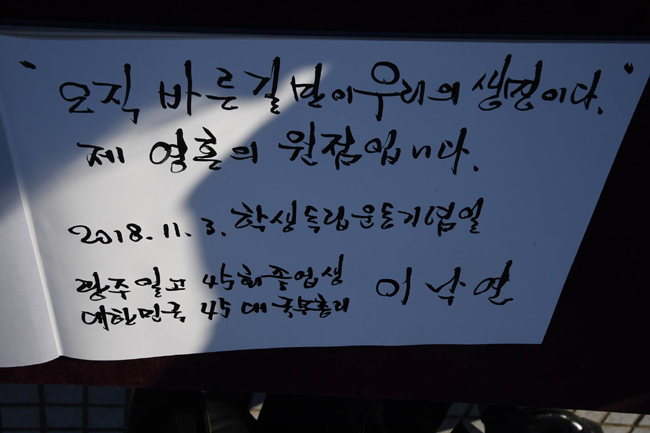 "오직 바른 길만이 우리의 생명이다."
제 영혼의 원점입니다.
2018. 11. 3. 학생독립운동기념일
광주일고 45회 졸업생
대한민국 45대 국무총리
이낙연